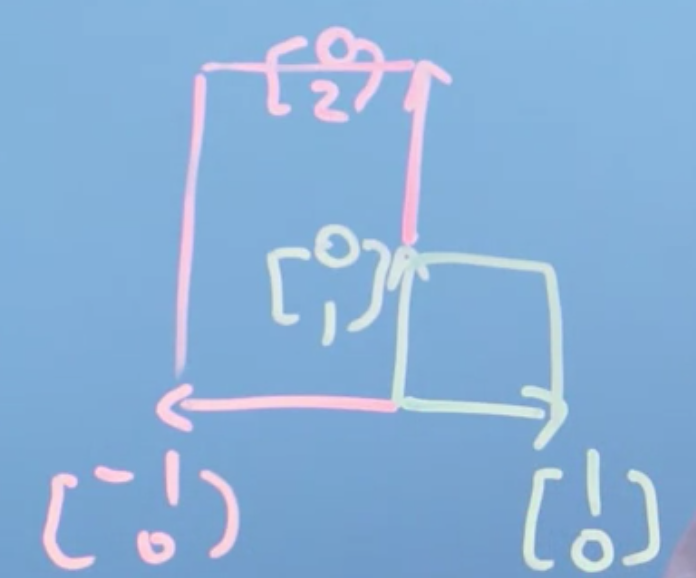 [0
2]
[0
1]
[-1
0]
[1
0]